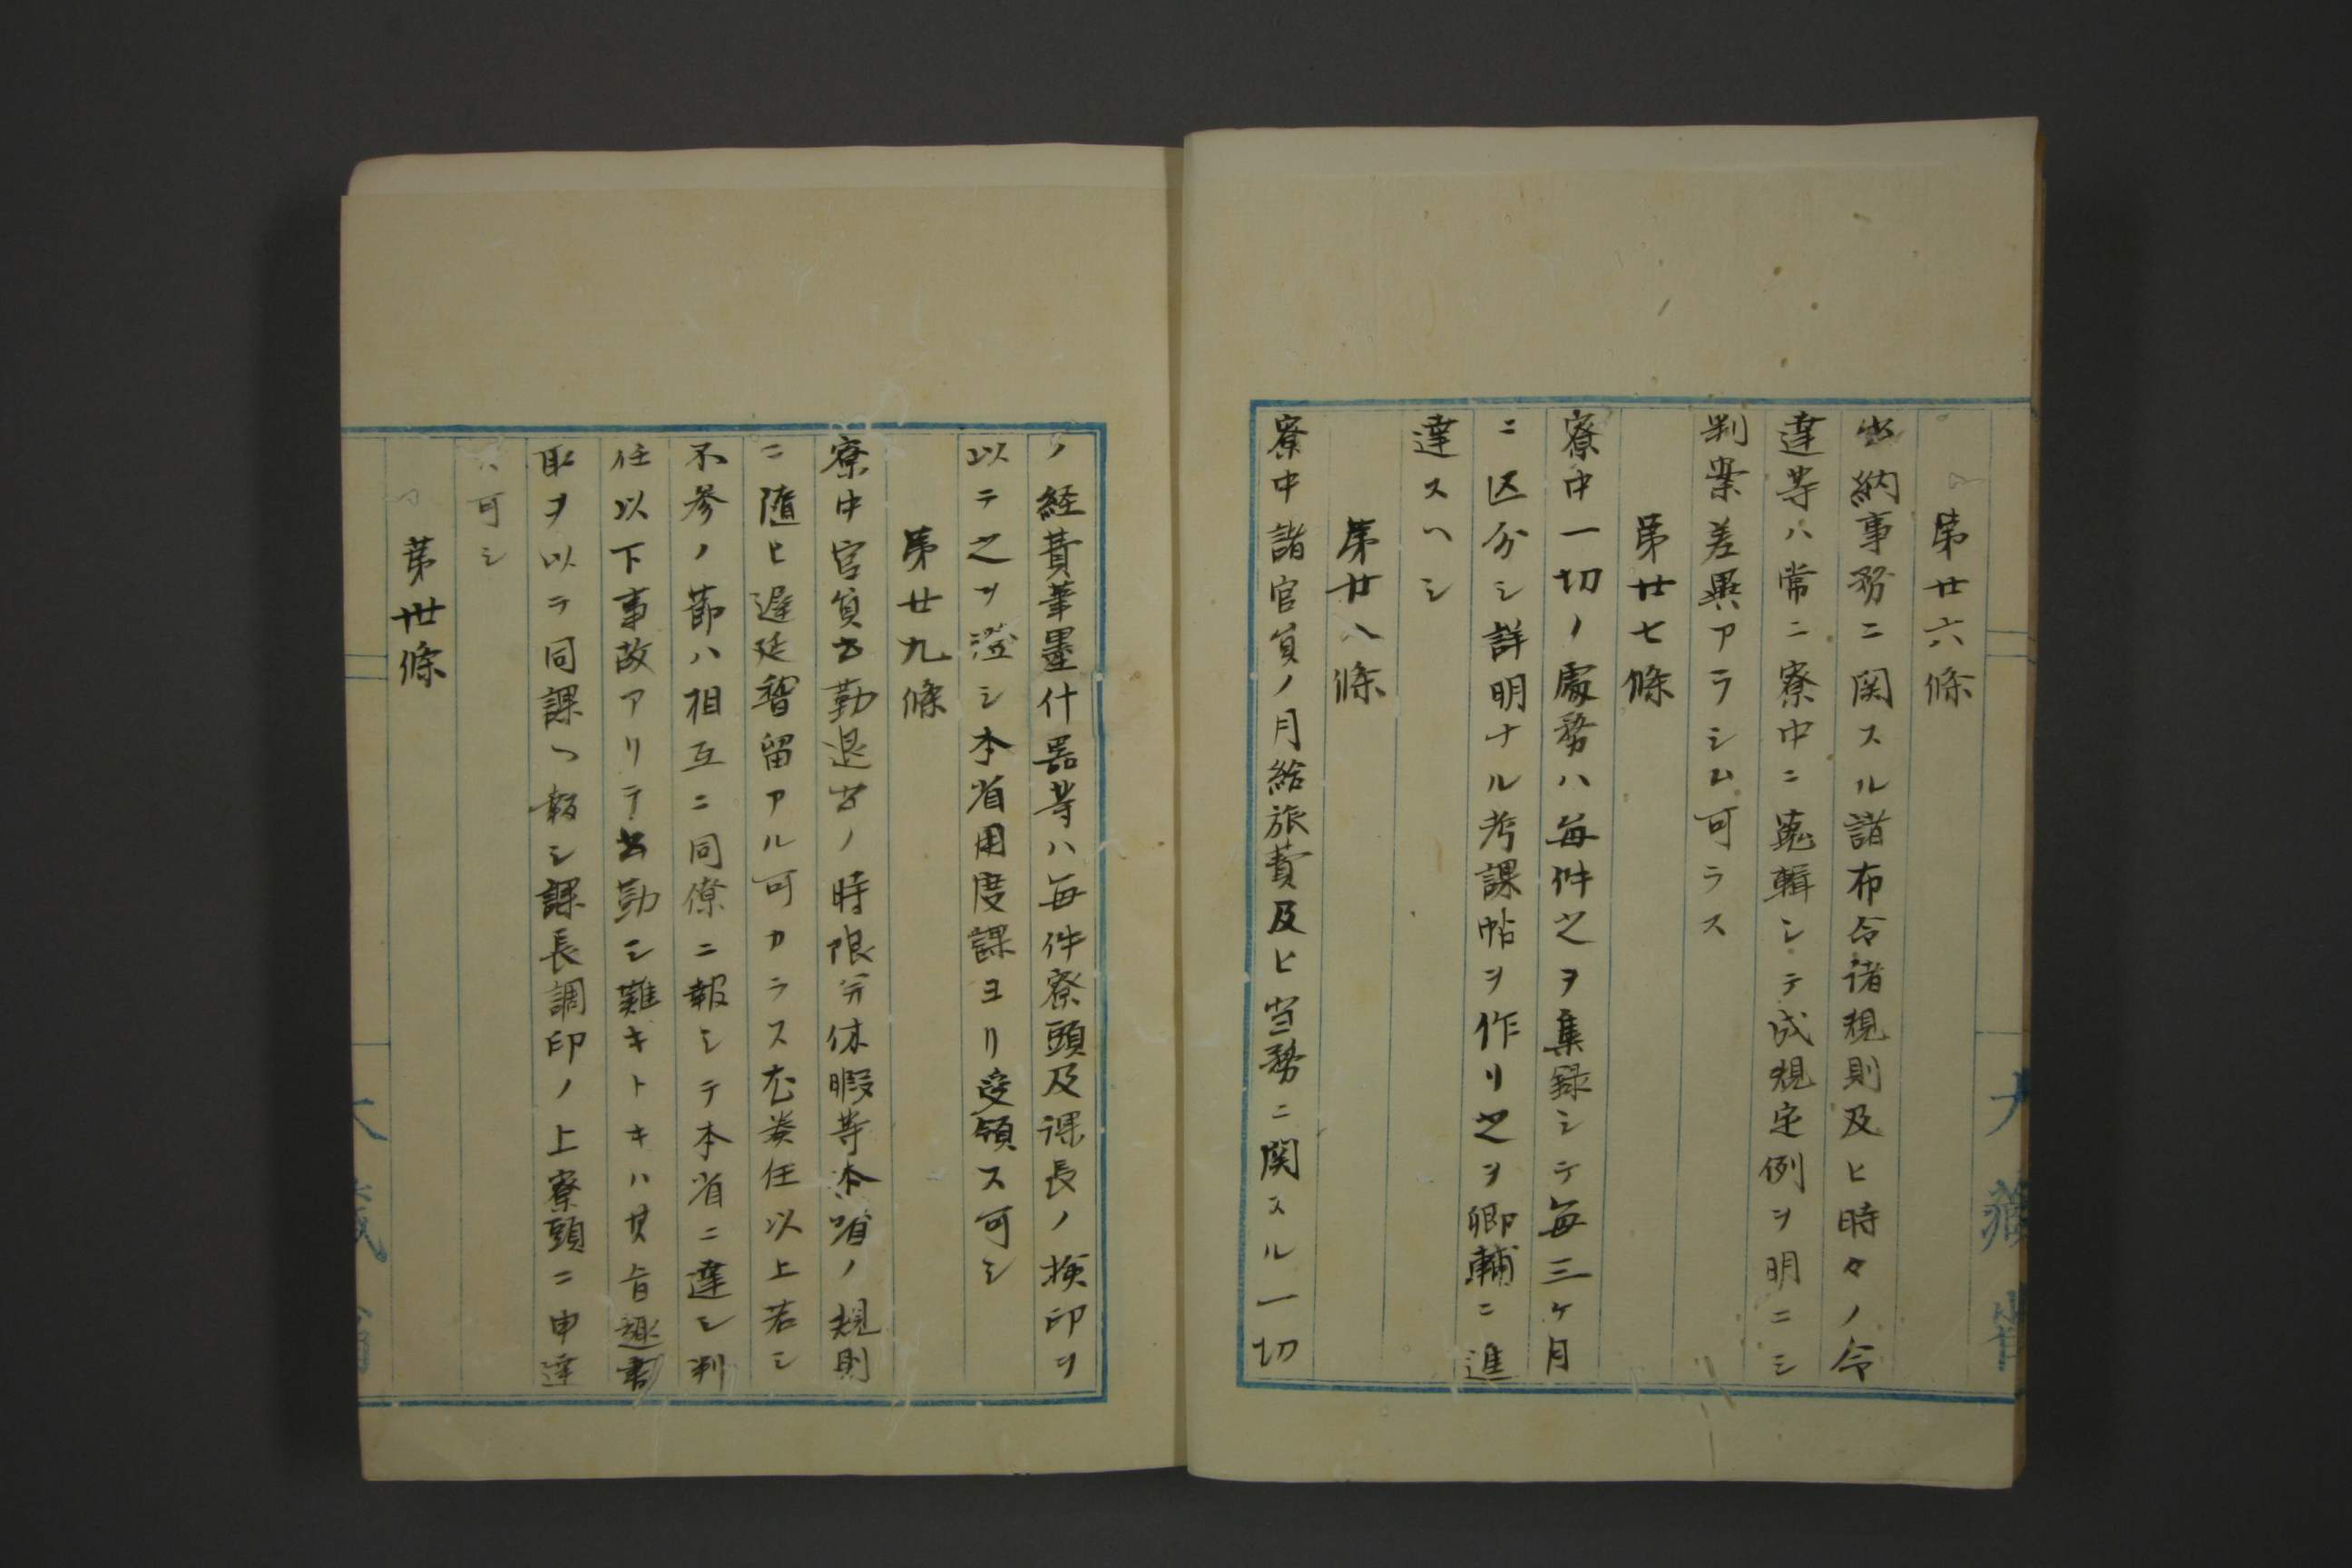 第廿六條
出納事務ニ関スル諸布令諸規則及ヒ時々ノ令
達等ハ常ニ寮中ニ蒐輯シテ成規定例ヲ明ニシ
判案差異アラシム可ラス
第廿七條
寮中一切ノ處務ハ毎件之ヲ集録シテ毎三ケ月
ニ区分シ詳明ナル考課帖ヲ作リ之ヲ卿輔ニ進
達スヘシ
第廿八條
寮中諸官員ノ月給旅費及ヒ当務ニ関スル一切
ノ経費筆墨什器等ハ毎件寮頭及課長ノ検印ヲ
以テ之ヲ澄シ本省用度課ヨリ受領ス可シ
第廿九條
寮中官員出勤退出ノ時限并休暇等本省ノ規則
ニ随ヒ遅延稽留アル可カラス尤奏任以上若シ
不参ノ節ハ相互ニ同僚ニ報シテ本省ニ達シ判
任以下事故アリテ出勤シ難キトキハ其旨趣書
取ヲ以テ同課ヘ報シ課長調印ノ上寮頭ニ申達
ス可シ
第卅條
大藏省
大藏省